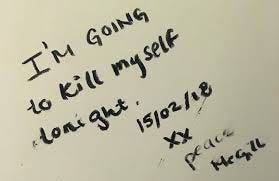 I'M GOING
to Kill myself
tonight.
15/02/18
xx
peace
McGill